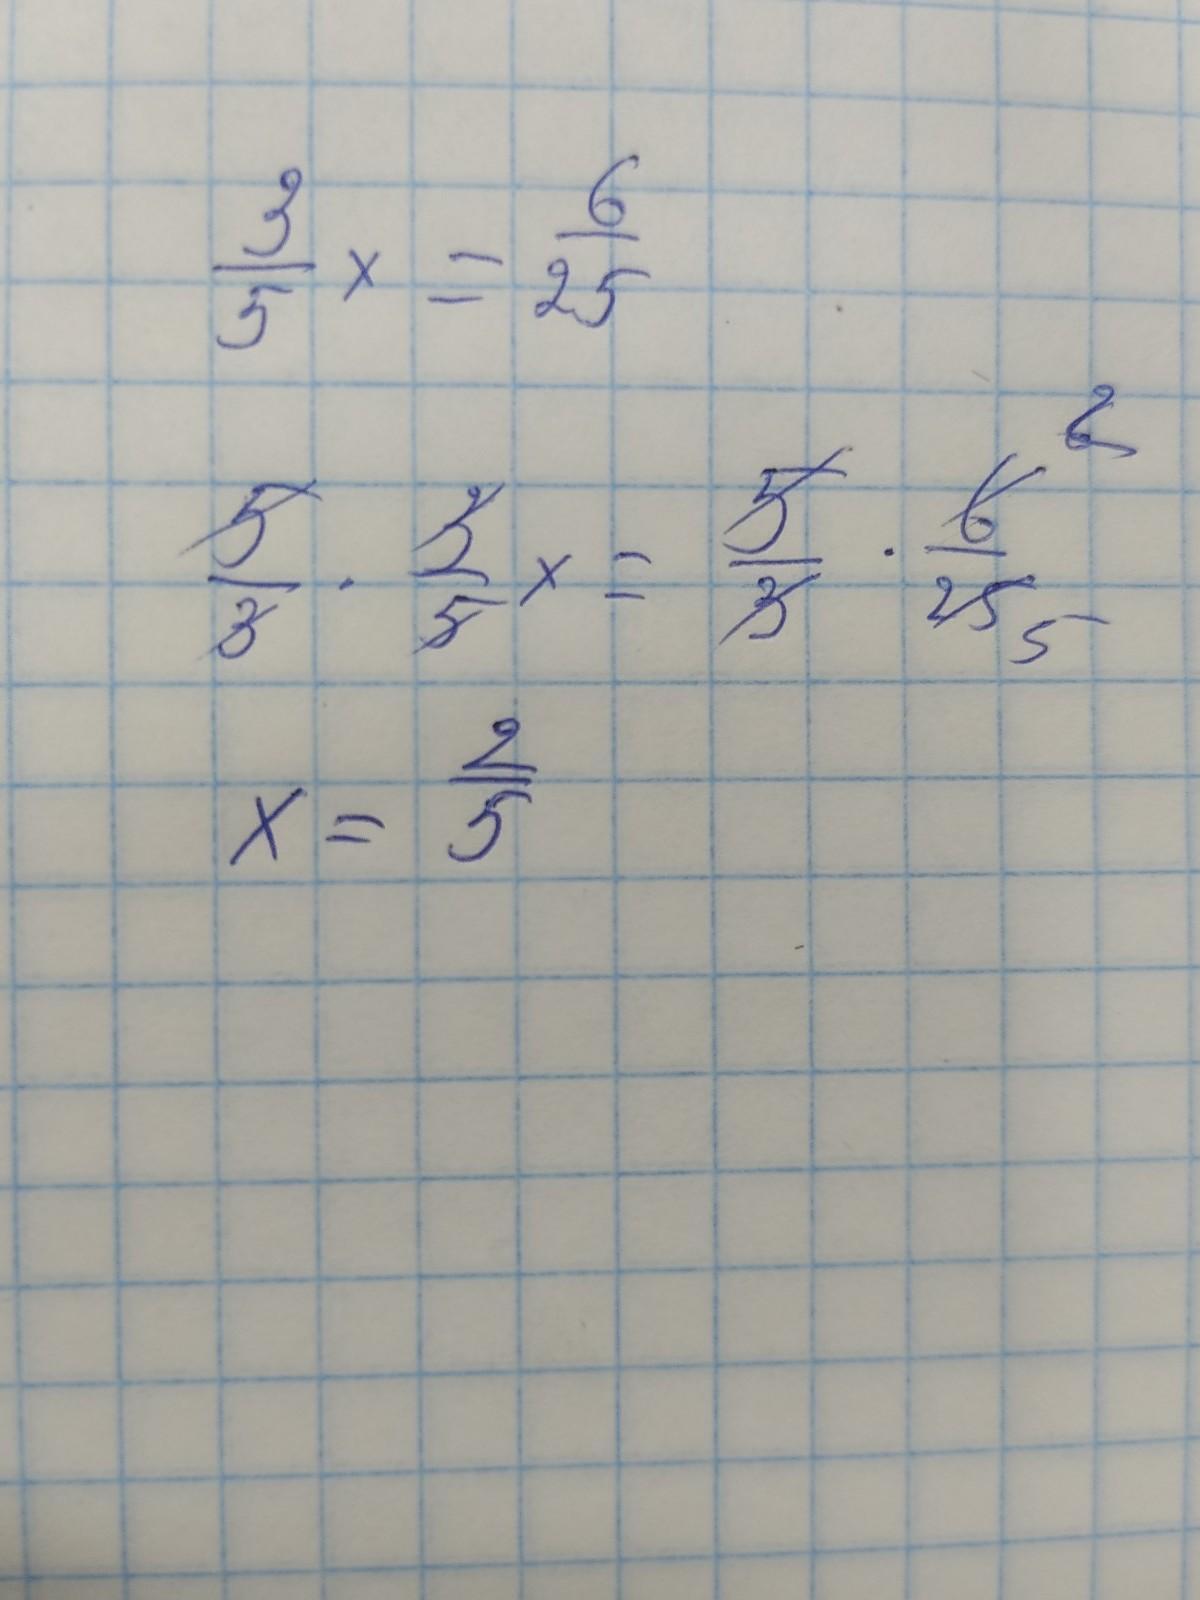 3/5 x = 6/25
5/3 · 3/5 x = 5/3 · 6/25 2 5
x = 2/5